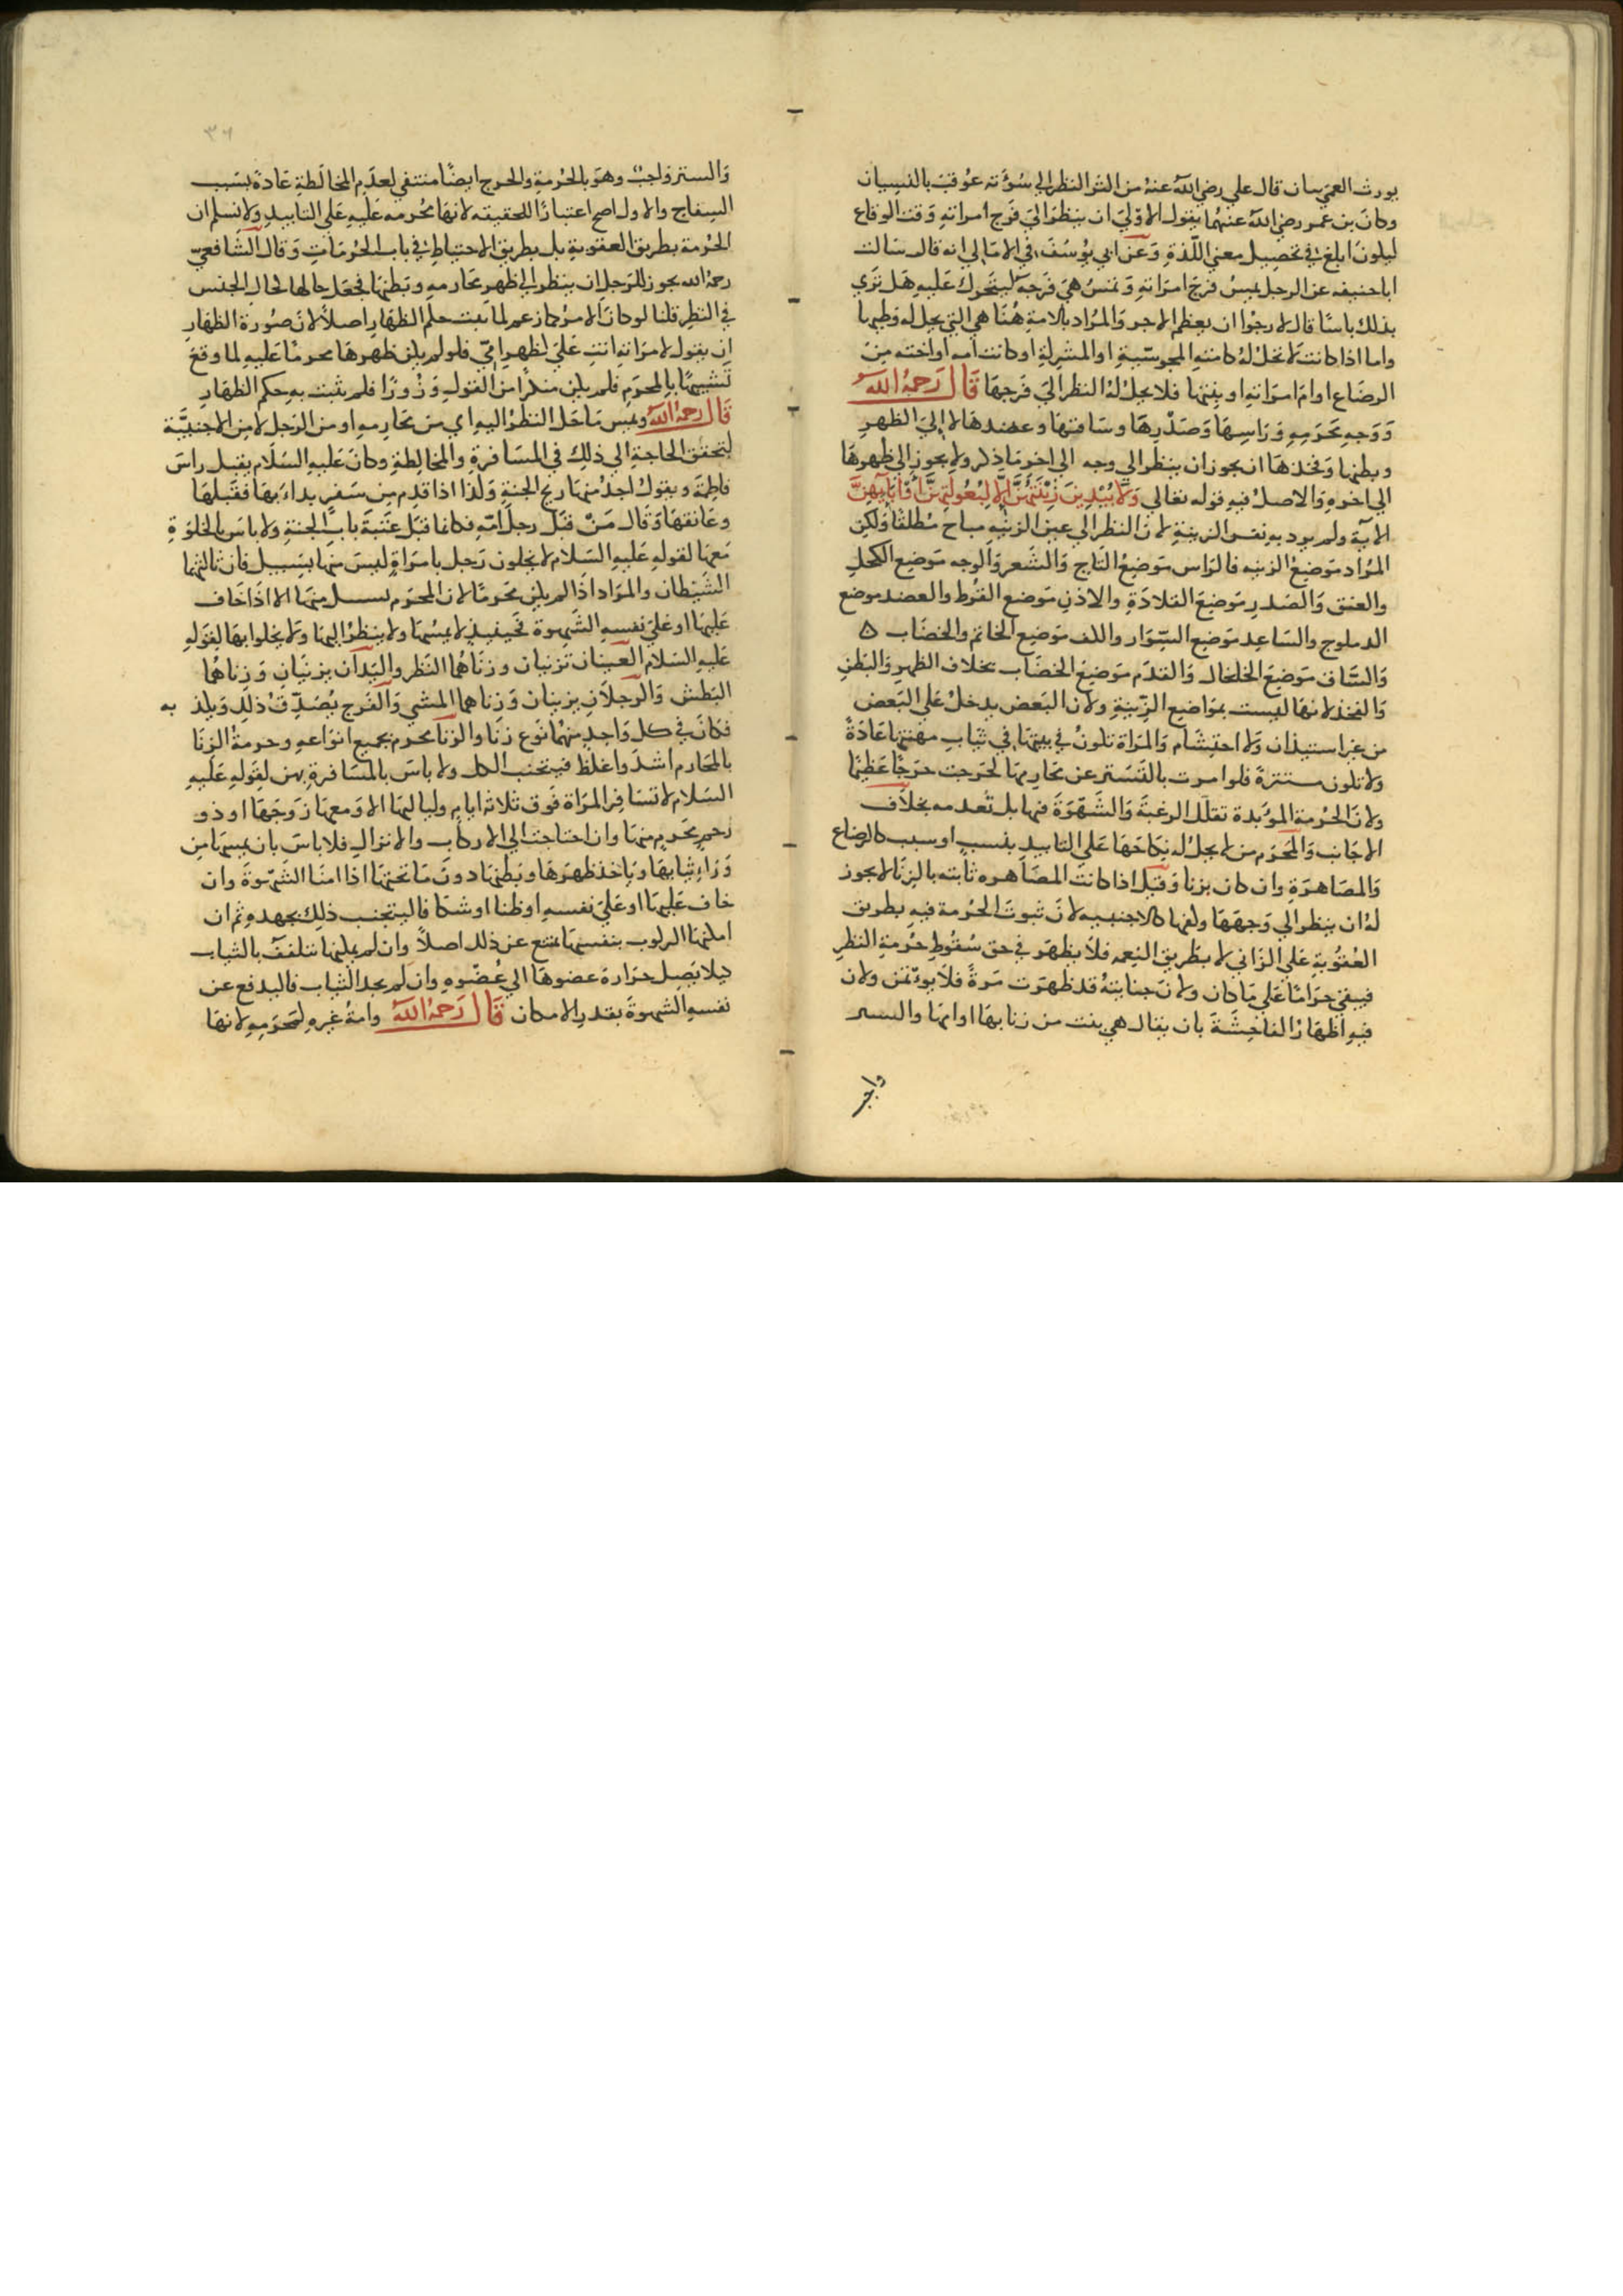 يورث العمي بيان قال علي رضي الله عنه من اكثر النظر الي سؤته عوقب بالنسيان
وكان بن عمر رضي الله عنهما يقول الاولي ان ينظر الي فرج امراته وقت الوقاع
ليكون ابلغ في تحصيل معني اللذة وعن ابي يوسف في الامالي انه قال سالت
ابا حنيفه عن الرجل يمس فرج امراته وتمس هي فرجه ليتحرك عليه هل تري
بذلك باسا قال لا ارجوا ان يعظم الاجر والمراد بالامة هنا هي التي يحل له وطيها
واما اذا كانت لا تحل له كامته المجوسية او المشركة او كانت امه او اخته من
الرضاع او ام امراته او بنتها فلا يحل له النظر الي فرجها قال رحمه الله
ووجه محرمه وراسها وصدرها وساقها وعضدها لا الي الظهر
وبطنها وفخذها اي يجوز ان ينظر الي وجه الي اخر ما ذكر ولا يجوز الي ظهرها
الي اخره والاصل فيه قوله تعالي ولا يبدين زينتهن الا لبعولتهن او ابايهن
الاية ولم يرد به نفس الزينة لان النظر الي عين الزينه مباح مطلقا ولكن
المراد موضع الزينه فالراس موضع التاج والشعر والوجه موضع الكحل
والعنق والصدر موضع القلادة والاذن موضع القرط والعضد موضع
الدملوج والساعد موضع السوار والكف موضع الخاتم والخضاب ه
والساق موضع الخلخال والقدم موضع الخضاب بخلاف الظهر والبطن
والفخذ لانها ليست بمواضع الزينة ولان البعض يدخل علي البعض
من غير استيذان ولا احتشام والمراة تكون في بيتها في ثياب مهنتها عادة
ولا تكون مستترة فلو امرت بالتستر عن محارمها لحرجت حرجا عظيما
ولان الحرمة المؤبدة تقلل الرغبة والشهوة فيها بل تعدمه بخلاف
الاجانب والمحرم من لا يحل له نكاحها علي التابيد بنسب او سبب كالرضاع
والمصاهرة وان كان بزنا وقيل اذا كانت المصاهره ثابته بالزنا لا يجوز
له ان ينظر الي وجهها وكفها كالاجنبيه لان ثبوت الحرمة فيه بطريق
العقوبة علي الزاني لا بطريق النعمه فلا يظهر في حق سقوط حرمة النظر
فيبقي حراما علي ما كان ولان جنايته قد ظهرت مرة فلا يوتمن ولان
فيه اظهار الفاحشة بان يقال هي بنت من زنا بها او امها والستر
واجب
٣٦
والستر واجب وهو بالحرمة والحرج ايضا منتفي لعدم المخالطة عادة بسبب
السفاح والاول اصح اعتبارا للحقيقه لانها محرمه عليه علي التابيد ولا نسلم ان
الحرمة بطريق العقوبة بل بطريق الاحتياط في باب الحرمات وقال الشافعي
رحمه الله يجوز للرجل ان ينظر الي ظهر محارمه وبطنها فجعل حالها كحال الجنس
في النظر قلنا لو كان الامر كما زعم لما ثبت حكم الظهار اصلا لان صورة الظهار
ان يقول لامراته انت علي كظهر امي فلو لم يكن ظهرها محرما عليه لما وقع
تشبيها بالمحرم فلم يكن منكرا من القول وزورا فلم يثبت به حكم الظهار
قال رحمه الله ويمس ما حل النظر اليه اي من محارمه او من الرجل لا من الاجنبية
لتحقق الحاجة الي ذلك في المسافرة والمخالطة وكان عليه السلام يقبل راس
فاطمة ويقول اجد منها ريح الجنة ولذا اذا قدم من سفر بداء بها فقبلها
وعانقها وقال من قبل رجل امه فكانما قبل عتبة باب الجنة ولا باس بالخلوة
معها لقوله عليه السلام لا يخلون رجل بامراة ليس منها بسبيل فان ثالثهما
الشيطان والمراد اذا لم يكن محرما لان المحرم بسبيل منها الا اذا خاف
عليها او علي نفسه الشهوة فحينيذ لا يمسها ولا ينظر اليها ولا يخلوا بها لقوله
عليه السلام العينان تزنيان وزناهما النظر واليدان يزنيان وزناهما
البطش والرجلان يزنيان وزناهما المشي والفرج يصدق ذلك ويكذ به
فكان في كل واحد منهما نوع زنا والزنا محرم بجميع انواعه وحرمة الزنا
بالمحارم اشد واغلظ فيتجنب الكل ولا باس بالمسافرة بهن لقوله عليه
السلام لا تسافر المراة فوق ثلاثه ايام ولياليها الا ومعها زوجها او ذو
رحم محرم منها وان احتاجت الي الاركاب والانزال فلا باس بان يمسها من
وراء ثيابها وياخذ ظهرها وبطنها دون ما تحتها اذا امنا الشهوة وان
خاف عليها او علي نفسه او ظنا او شكا فاليتجنب ذلك بجهده ثم ان
امكنها الركوب بنفسها يمتنع عن ذلك اصلا وان لم يمكنها تتلفف بالثياب
كيلا يصل حرارة عضوها الي عضوه وان لم يجد الثياب فاليدفع عن
نفسه الشهوة بقدر الامكان قال رحمه الله وامة غيره كمحرمه لانها